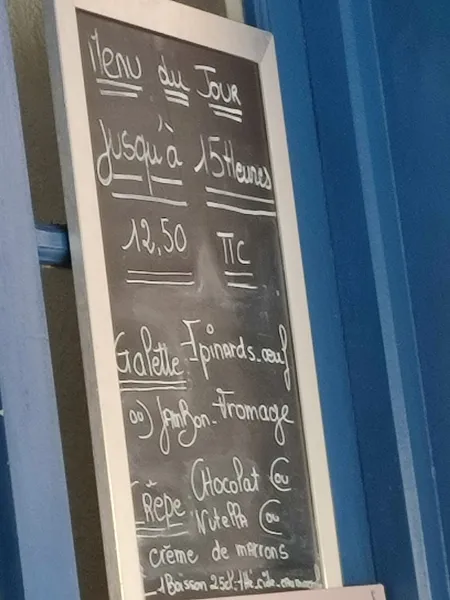 Menu du Jour
Jusqu'à 15 Heures
12,50 TTC
Galette Epinards-œuf
ou) Jambon-Fromage
Crêpe Chocolat ou
Nutella ou
crème de marrons
1 Boisson 25cl-thé-cidre